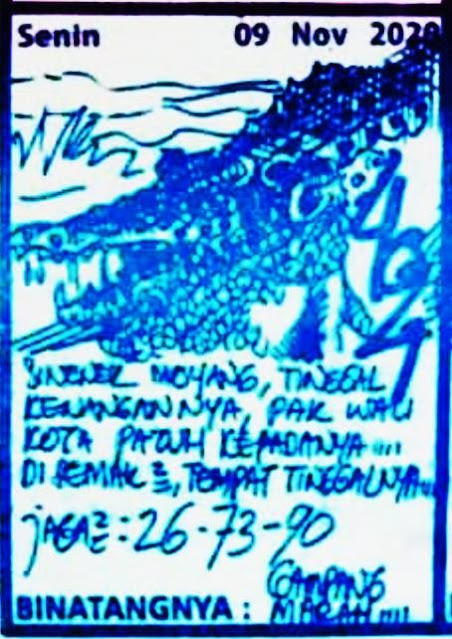 Senin 09 Nov 2020
MOYANG, TINGGAL
KENANGANNYA, PAK WALI
KOTA PATUH KEPADANYA....
DI SEMAK 2, TEMPAT TINGGALNYA...
JAGA2 : 26-73-90
GAMPANG
BINATANGNYA : MARAH....